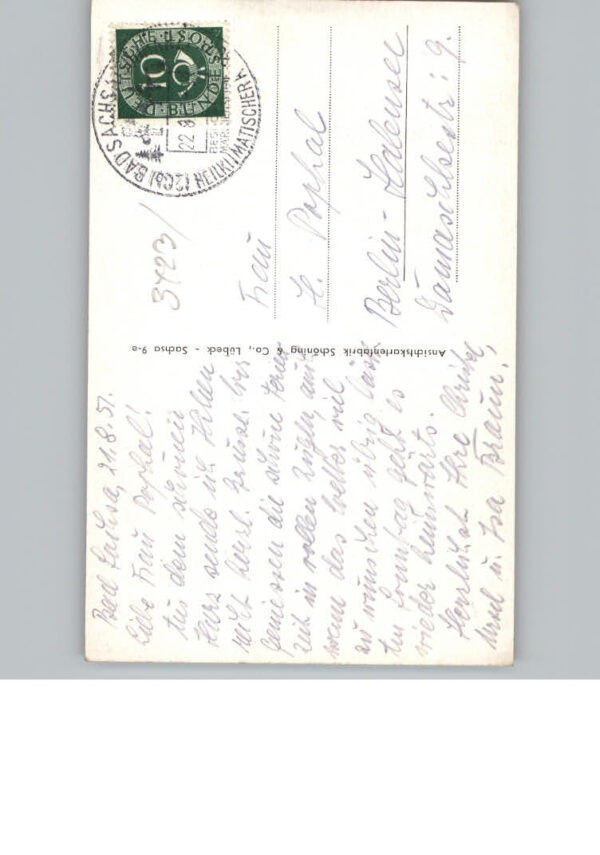 Bad Sachsa, 21.8.51.
Liebe Frau Pophal!
Aus dem schönen
Harz sende ich Ihnen
recht herzl. Grüsse. Wir
geniessen die schöne Ferien
zeit in vollen Zügen, auch
wenn das Wetter viel
zu wünschen übrig lässt.
Am Sonntag geht es
wieder heimwärts.
Herzlichst Ihre Christel,
Ursel u. Isa Braun.
Ansichtskartenfabrik Schöning & Co., Lübeck - Sachsa 9-a
Frau
H. Pophal
Berlin-Halensee
Damaschkestr. 9.
3423/
DEUTSCHE BUNDESPOST
10
(20b) BAD SACHSA
HEILKLIMATISCHER
22.8